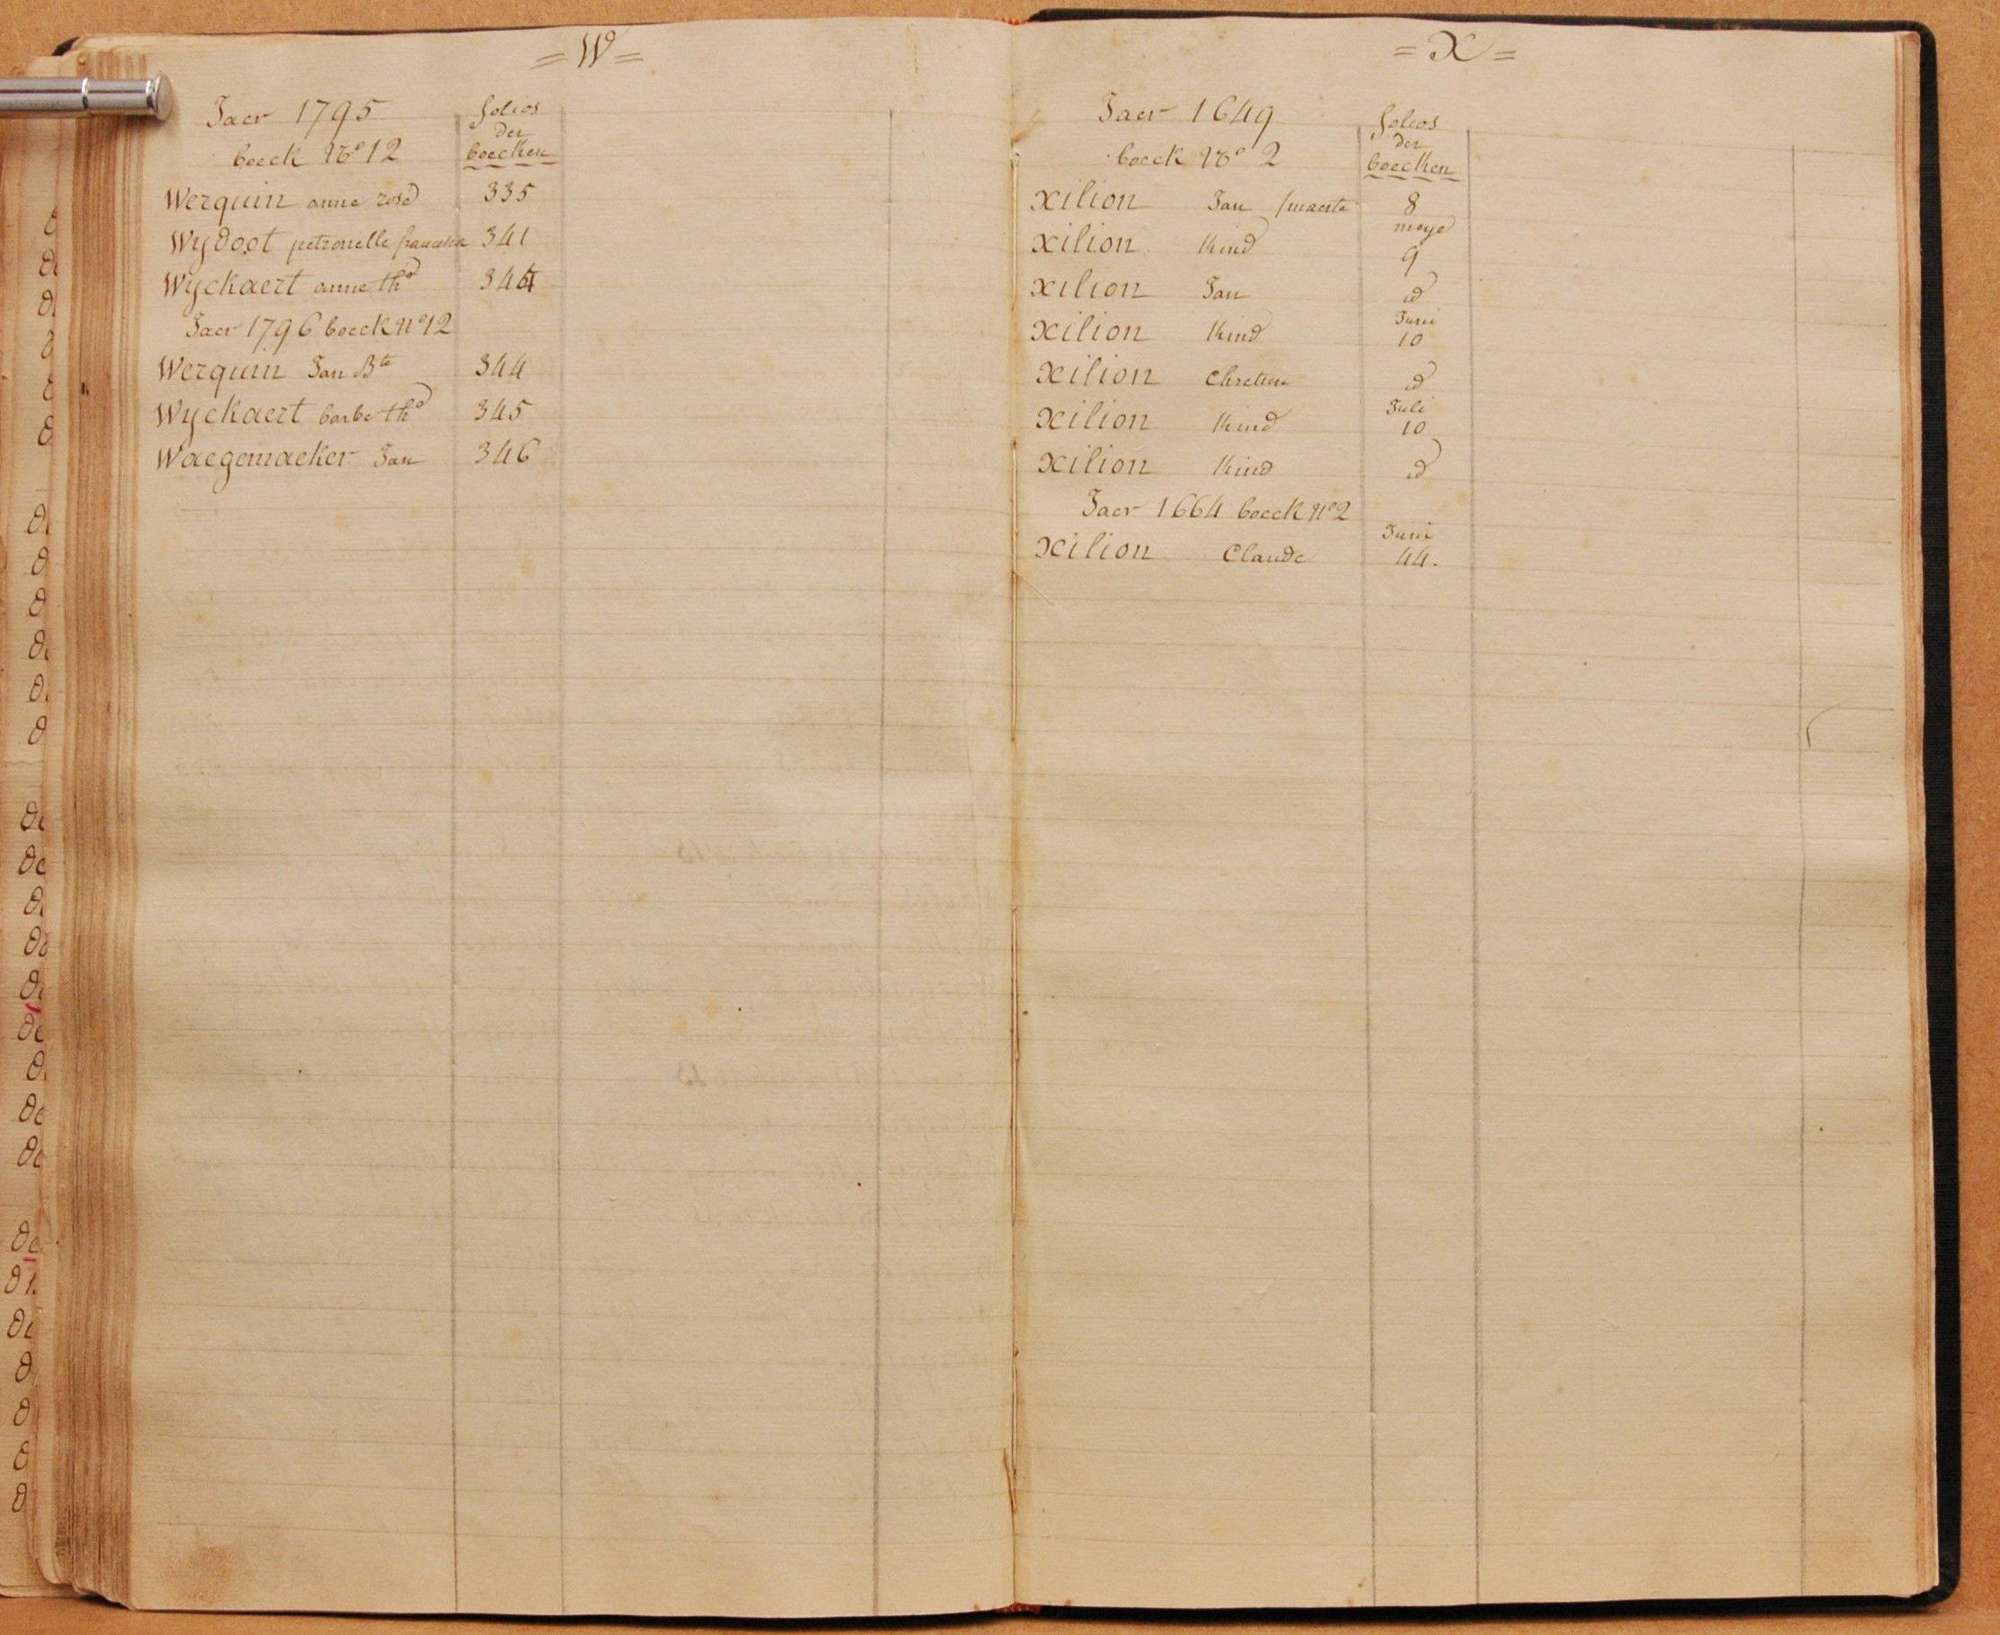 = W =
Jaer 1795
folios
der
boecken
boeck No 12
Werquin anne rose 335
Wydoot petronelle francoise 341
Wyckaert anne th° 344
Jaer 1796 boeck n° 12
Werquin Jan Bte 344
Wyckaert barbe th° 345
Waegemaeker Jan 346
= X =
Jaer 1649
folios
der
boecken
boeck No 2
Xilion Jan / maerte 8
meye
Xilion Kind 9
Xilion Jan id
Juni
Xilion Kind 10
Xilion Chretien id
Juli
Xilion Kind 10
Xilion Kind id
Jaer 1664 boeck n° 2
Juni
Xilion Claude 44.